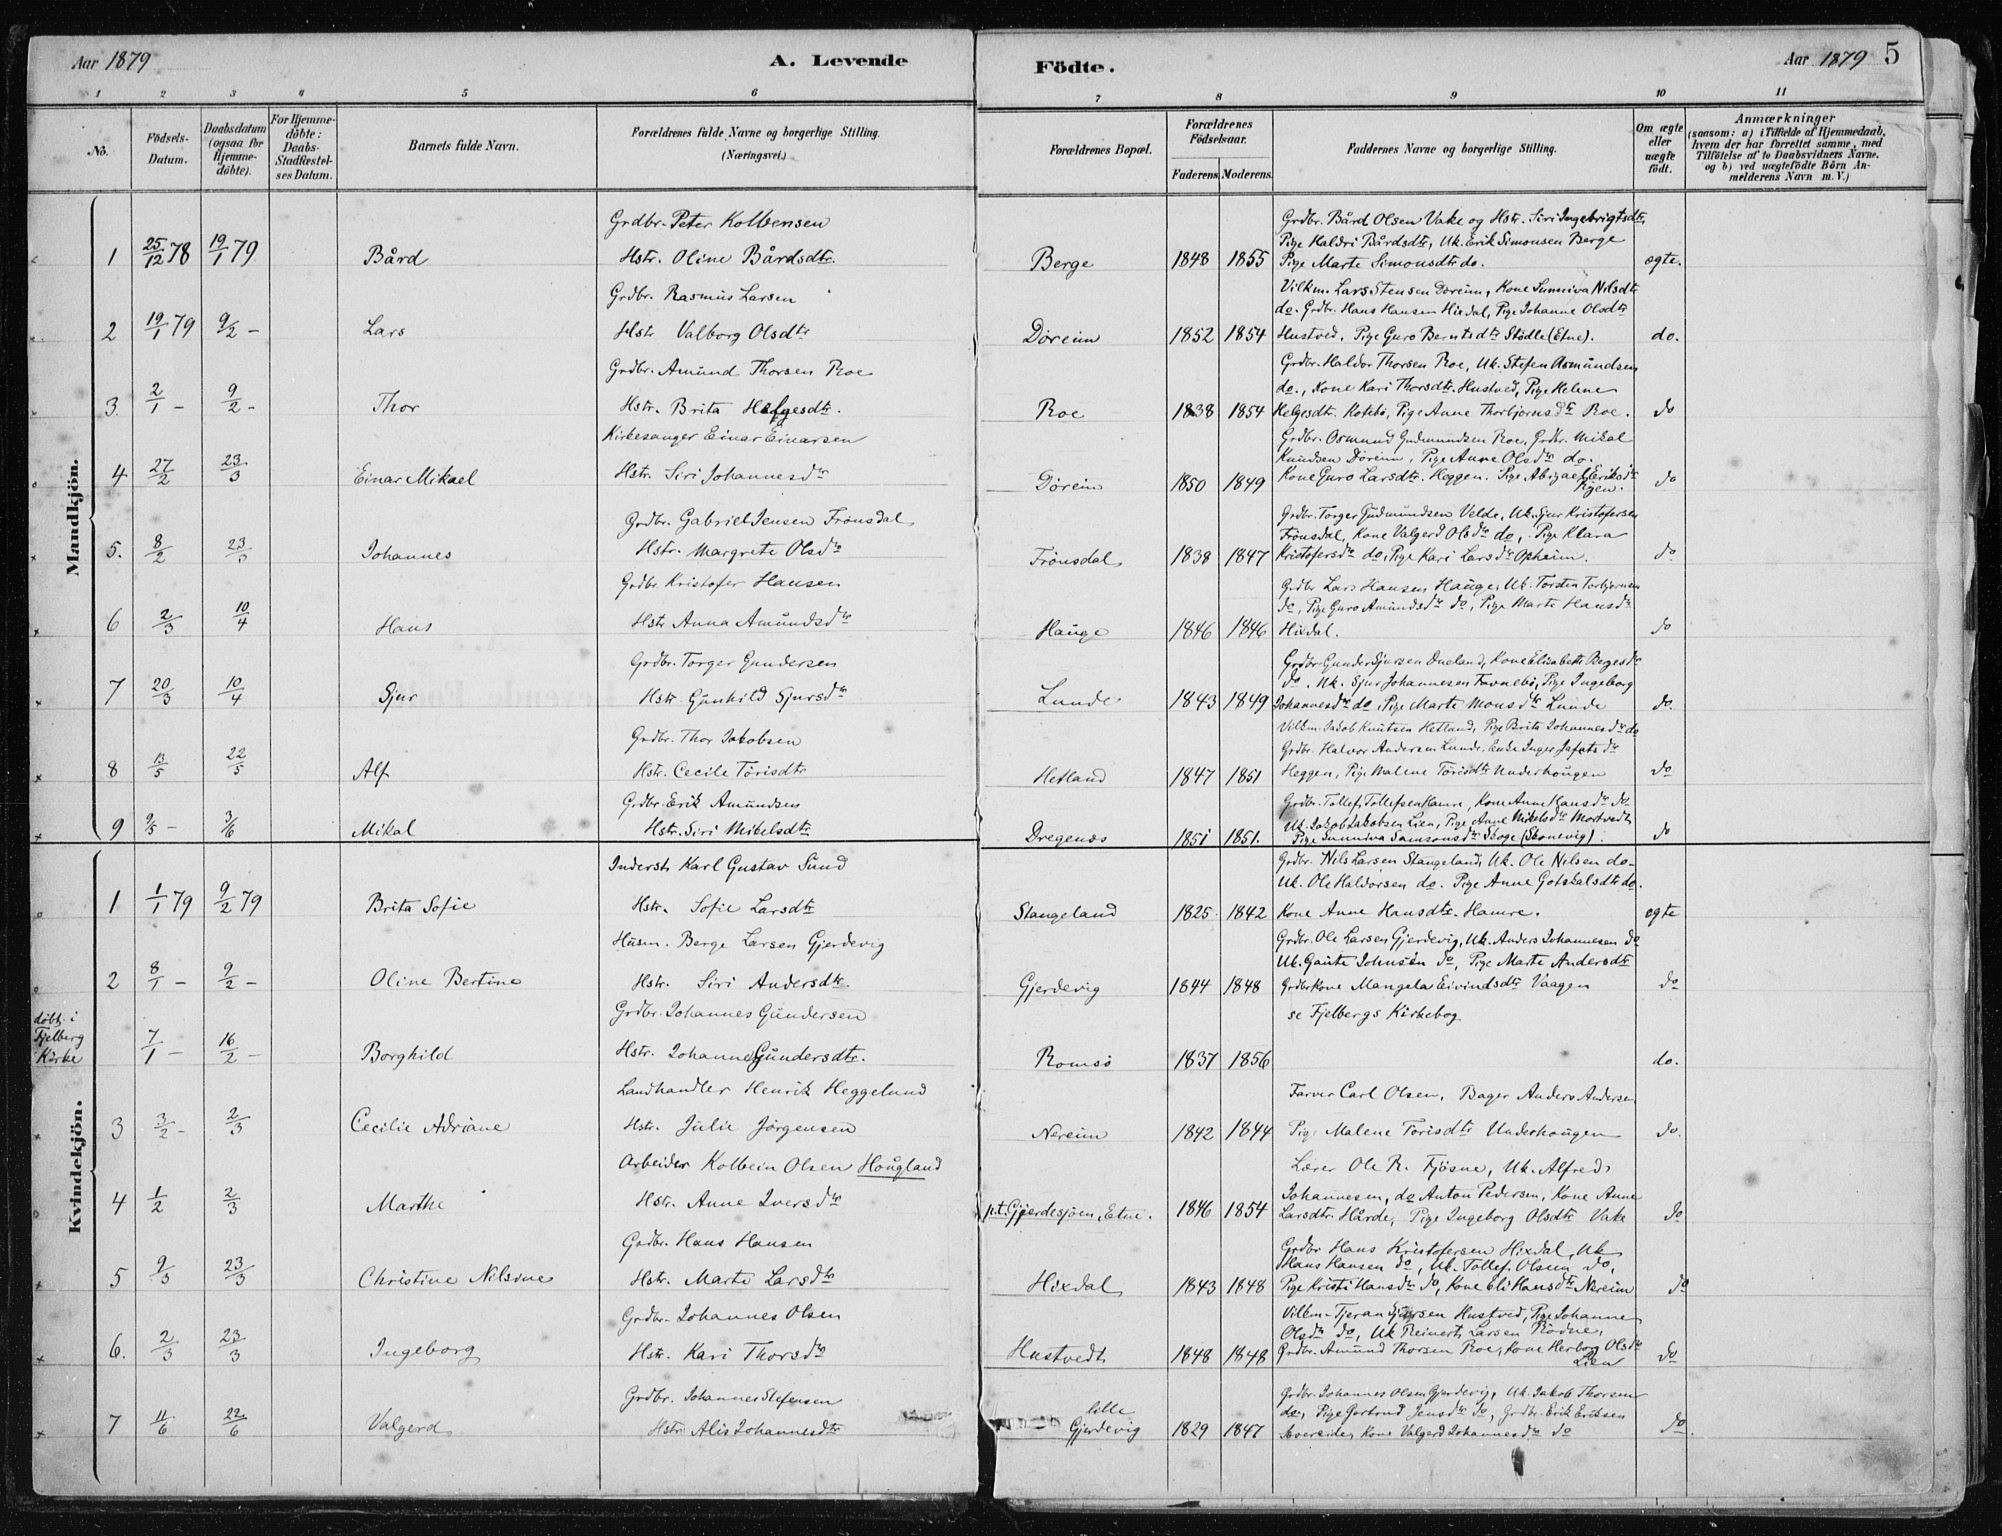 Aar 1879
A. Levende
Födte.
Aar 1879 5
1 2 3 4 5 6 7 8 9 10 11
No.
Födsels-Datum.
Daabsdatum (ogsaa for Hjemme-döbte).
For Hjemme-döbte: Daabs-Stadfæstel-ses Datum.
Barnets fulde Navn.
Forældrenes fulde Navne og borgerlige Stilling. (Næringsvei.)
Forældrenes Bopæl.
Forældrenes Födselsaar.
Faderens. Moderens.
Faddernes Navne og borgerlige Stilling.
Om ægte eller uægte födt.
Anmærkninger
(saasom: a) i Tilfælde af Hjemmedaab, hvem der har forrettet samme, med Tilföielse af to Daabsvidners Navne, og b) ved uægtefödte Börn An-melderens Navn m. V.)
Mandkjön.
Grdbr. Peter Kolbensen
1 25/12 78 19/1 79 Bård Hstr. Oline Bårdsdtr.
Berge 1848 1855
Grdbr. Bård Olsen Vake og Hstr. Siri Ingebrigtsdtr,
Pige Haldri Bårdsdtr, Uk. Erik Simonsen Berge
Pige Marte Simonsdtr do. ægte.
Grdbr. Rasmus Larsen
2 19/1 79 9/2 – Lars Hstr Valborg Olsdtr
Döreim 1852 1854
Vilkm. Lars Stensen Döreim, Kone Sunniva Nilsdtr
do. Grdbr. Hans Hansen Hixdal, Pige Johanne Olsdtr
Hustved, Pige Guro Berntsdtr Stödle (Etne). do.
Grdbr. Amund Thorsen Roe
3 2/1 – 9/2 – Thor Hstr. Brita Helgesdtr.
Roe 1838 1854
Grdbr. Haldor Thorsen Roe, Uk. Stefen Osmundsen
do., Kone Kari Thorsdtr. Hustved, Pige Helene
Helgesdtr. Kotebö, Pige Anne Thorbjörnsdtr Roe. do
Kirkesanger Einar Einarsen
4 27/2 23/3 Einar Mikael Hstr. Siri Johannesdtr
Dörein 1850 1849
Grdbr. Osmund Gudmundsen Roe, Grdbr. Mikal
Knudsen Döreim, Pige Anne Olsdtr do.
Kone Guro Larsdtr. Heggen. Pige Abigael Eriksdtr
do
Grdbr. Gabriel Jensen Frönsdal
5. 8/2 23/3 Johannes Hstr. Margrete Olsdtr
Frönsdal 1838 1847
Grdbr. Torger Gudmundsen Velde, Uk. Sjur Kristofersen
Frönsdal, Kone Valgerd Olsdtr do, Pige Klara
Kristofersdtr do, Pige Kari Larsdtr Opheim. do
Grdbr Kristofer Hansen
6 2/3 10/4 Hans Hstr Anna Amundsdtr
Hauge 1846 1846
Grdbr Lars Hansen Hauge, Uk. Torsten Torbjörnsen
do, Pige Guro Amundsdtr do, Pige Marta Hansdtr
Hixdal. do
Grdbr. Torger Gundersen
7 20/3 10/4 Sjur Hstr. Gunhild Sjursdtr
Lunde 1843 1849
Grdbr Gunder Sjursen Dueland, Kone Elisabeth Bergesdtr
do. Uk. Sjur Johannesen Favnebö, Pige Ingeborg
Johannesdtr do, Pige Marte Monsdtr Lunde do.
Grdbr. Thor Jakobsen
8 13/5 22/5 Alf Hstr. Cecile Törisdtr
Hetland 1847 1851
Vilkm. Jakob Knutsen Hetland, Pige Brita Johannesdtr do
Grdbr. Halvor Andersen Lunde, Enke Inger Jafetsdtr
Heggen, Pige Malene Törisdtr Underhougen do
Grdbr. Erik Amundsen
9 9/5 – 3/6 Mikal Hstr. Siri Mikelsdtr
Dregenæs 1851 1851.
Grdbr. Tollef Tollefsen Hamre, Kone Anne Hansdtr do
Uk. Jakob Jakobsen Lien, Pige Anne Mikelsdtr Mortvedt
Pige Sunniva Samsonsdtr Skoge (Skonevig). do
Kvindekjön.
Inderst Karl Gustav Sund
1 1/1 79 9/2 79 Brita Sofie Hstr. Sofie Larsdtr
Stangeland 1825 1842
Grdbr. Nils Larsen Stangeland, Uk. Ole Nilsen do.
Uk. Ole Haldorsen do. Pige Anne Gotskalsdtr do.
Kone Anne Hansdtr. Hamre. ægte
Husm. Berge Larsen Gjerdevig
2 8/1 – 9/2 – Oline Bertine Hstr. Siri Andersdtr.
Gjerdevig 1844 1848
Grdbr. Ole Larsen Gjerdevig, Uk. Anders Johannesen do
Uk. Gaute Johnsen do, Pige Marte Andersdtr
Grdbrkone Mangela Eivindsdtr Vaagen do
döbt i Fjelberg Kirke
Grdbr. Johannes Gundersen
7/1 – 16/2 – Borghild Hstr. Johanne Gundersdtr.
Romsö 1837 1856
se Fjelbergs Kirkebog
do.
Landhandler Henrik Heggelund
3 3/2 – 2/3 Cecilie Adriane Hstr. Julie Jörgensen
Nereim 1842 1844
Farver Carl Olsen, Bager Anders Andersen
Pige Malene Torisdtr Underhougen do.
Arbeider Kolbein Olsen Hougland
4 1/2 2/3 Marthe Hstr. Anne Iversdtr
p.t. Gjerdesjöen, Etne. 1846 1854
Lærer Ole R. Fjösne, Uk. Alfred
Johannesen, do Anton Pedersen, Kone Anne
Larsdtr. Hårde, Pige Ingeborg Olsdtr Vake do
Grdbr. Hans Hansen
5 9/3 23/3 Christine Nilsine Hstr. Marte Larsdtr
Hixdal 1843 1848
Grdbr Hans Kristofersen Hixdal, Uk
Hans Hansen do, Uk. Tollef Olsen do,
Pige Kristi Hansdtr do, Kone Eli Hansdtr Nereim do
Grdbr. Johannes Olsen
6. 2/3 23/3 Ingeborg Hstr. Kari Thorsdtr
Hustvedt 1848 1848
Vilkm. Tjeran Sjursen Hustved, Pige Johanne
Olsdtr do, Uk Reinert Larsen Rödne,
Grdbr. Amund Thorsen Roe, Kone Herborg Olsdtr
Lien do
Grdbr. Johannes Stefensen
7 11/6 22/6 Valgerd Hstr. Alis Johannesdtr
lille
Gjerdevig 1829 1847
Grdbr. Johannes Olsen Gjerdevig, Uk. Jakob Thorsen
do, Pige Gertrud Jensdtr do, Grdbr. Erik Eriksen
Kone Valgerd Johannesdtr do do